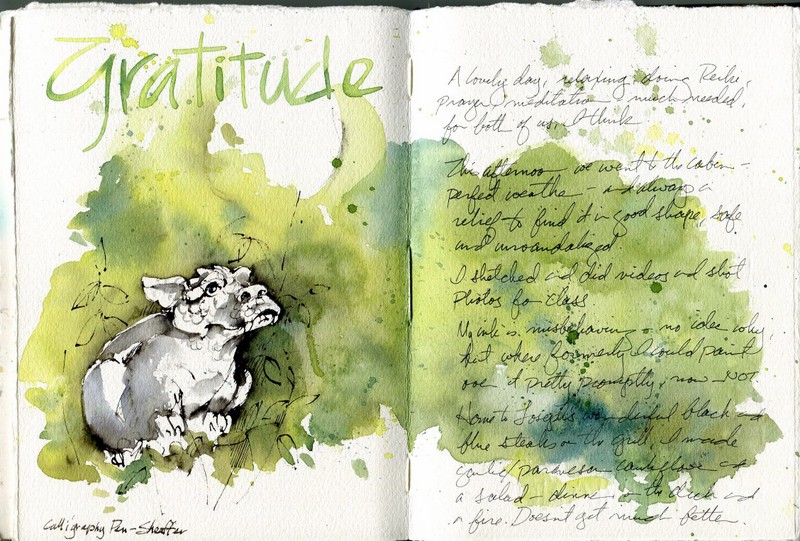 Gratitude
Calligraphy Pen - Sheaffer
A lovely day, relaxing, doing Reiki,
prayer, meditation - much needed,
for both of us I think
This afternoon we went to the cabin -
perfect weather - and always a
relief to find it in good shape, safe
and unvandalized
I sketched and did videos and shot
photos for class.
My ink is misbehaving - no idea why,
that where formerly I could paint
over it pretty promptly, now NOT.
Home to Joseph's wonderful black and
blue steaks on the grill, I made
garlic/parmesan cauliflower and
a salad - dinner on the deck and
a fire. Doesn't get much better